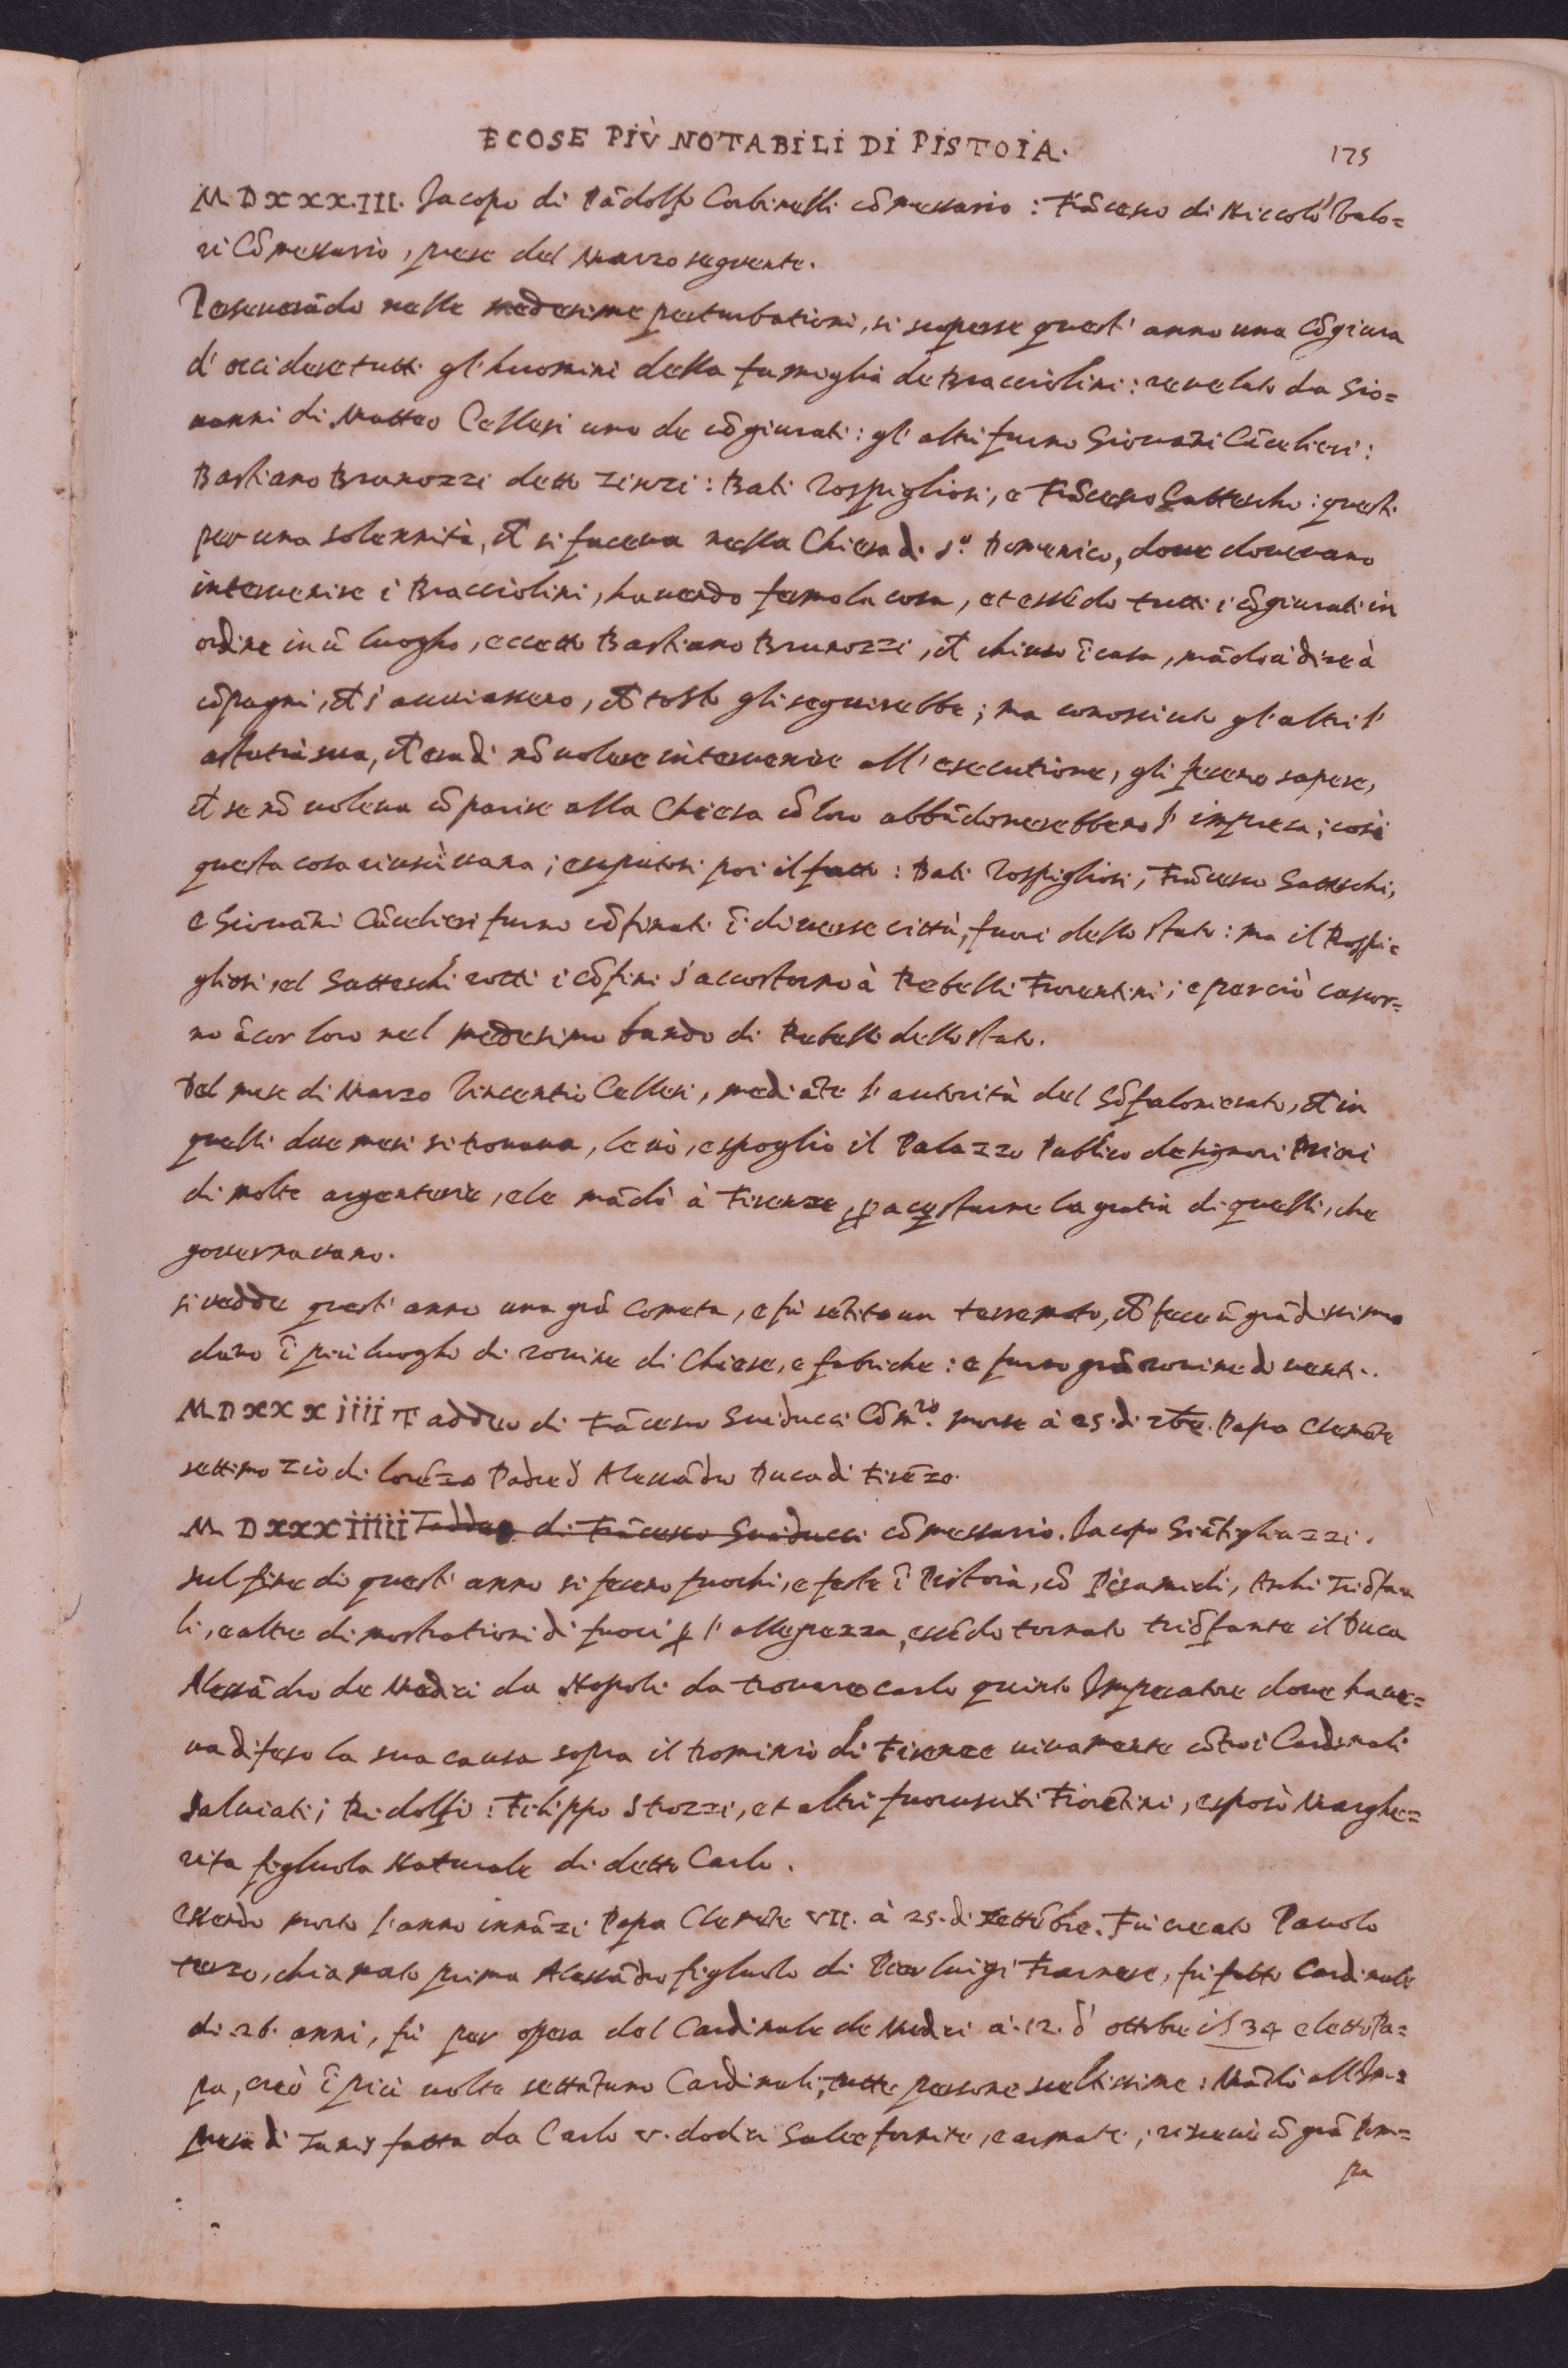 E COSE PIÙ NOTABILI DI PISTOIA.
175
MDXXX.III. Jacopo di Pãdolfo Corbinelli cõmessario: Frãcesco di Niccolò Valo=
ri Cõmessario, prese del Marzo seguente.
Perseverãdo nelle medesime perturbationi, si scoperse quest' anno una cõgiura
d' occidere tutti gl' huomini della famiglia de Bracciolini: revelata da Gio=
vanni di Matteo Cellesi uno de cõgiurati: gl' altri furno Giovãni Cãcelieri:
Bastiano Brunozzi detto Zinzi: Bati Rospigliosi, e Frãcesco Gatteschi: questi
per una solennità, ch̃ si faceva nella Chiesa di S.º Domenico, dove dovevano
intervenire i Bracciolini, havendo fermo la cosa, et essẽdo tutti i cõgiurati in
ordine in ũ luogho, eccetto Bastiano Brunozzi, ch̃ chiuso ĩ casa, mãdò à dire à
cõpagni, ch̃ s' avviassero, ch̃ tosto gli seguirebbe; ma conosciuto gl' altri l'
astutia sua, ch̃ era di nõ volere intervenire all' esecutione, gli fecero sapere,
ch̃ se nõ voleva cõparire alla Chiesa cõ loro abbãdonerebbero l' impresa; così
questa cosa riuscì vana; e saputosi poi il fatto: Bati Rospigliosi, Frãcesco Gatteschi,
e Giovãni Cãcelieri furno cõfinati ĩ diverse città, fuori dello stato: ma il Rospi=
gliosi, e 'l Gatteschi rotti i cõfini s' accostorno à Rebelli Fiorentini; e perciò cascor=
no ãcor loro nel medesimo bando di Rebelli dello stato.
Del mese di Marzo Vincentio Cellesi, mediãte l' autorità del Gõfalonierato, ch̃ in
quelli due mesi si trovava, levò, e spogliò il Palazzo Publico de Signori Priori
di molte argenterie, e le mãdò à Firenze, ꝑ acquistarne la gratia di quelli, che
governavano.
si vedde quest' anno una grã Cometa, e fù sẽtito un terremoto, ch̃ fece ũ grãdissimo
dãno ĩ più luoghi di rovine di Chiese, e fabriche: e furno grã rovine di venti.
MDXXXiiii Taddeo di Frãcesco Guiducci Cõm.rio morse à 25. di 7bre. Papa Clemẽte
settimo zio di Lorẽzo Padre d' Alessãdro Duca di Firẽze.
MDXXXiiiii Taddeo di Frãcesco Guiducci cõmessario. Jacopo Giãfigliazzi.
sul fine di quest' anno si fecero fuochi, e feste ĩ Pistoia, cõ Piramidi, Archi Triõfa
li, e altre dimostrationi di fuori ꝑ l' allegrezza, essẽdo tornato triõfante il Duca
Alessãdro de Medici da Napoli da trovare Carlo quinto Imperatore dove have=
va difeso la sua causa sopra il Dominio di Firenze vivamente cõtro i Cardinali
Salviati; Ridolfi: Filippo Strozzi, et altri fuorusciti Fiorẽtini, e sposò Marghe=
rita figliuola Naturale di detto Carlo.
essendo morto l' anno innãzi Papa Clemẽte VII. à 25. di Settẽbre. Fù creato Pavolo
terzo, chiamato prima Alessãdro figliuolo di Pier luigi Farnese, fù fatto Cardinale
di 26. anni, fù per opera del Cardinale de Medici à 12. d' ottobre 1534 eletto Pa=
pa, creò ĩ più volte settãtuno Cardinali, tutte persone sceltissime: Mãdò all' Im=
presa di Tunis fatta da Carlo V. dodici Galee fornite, e armate; ricevè cõ grã Pom=
pa